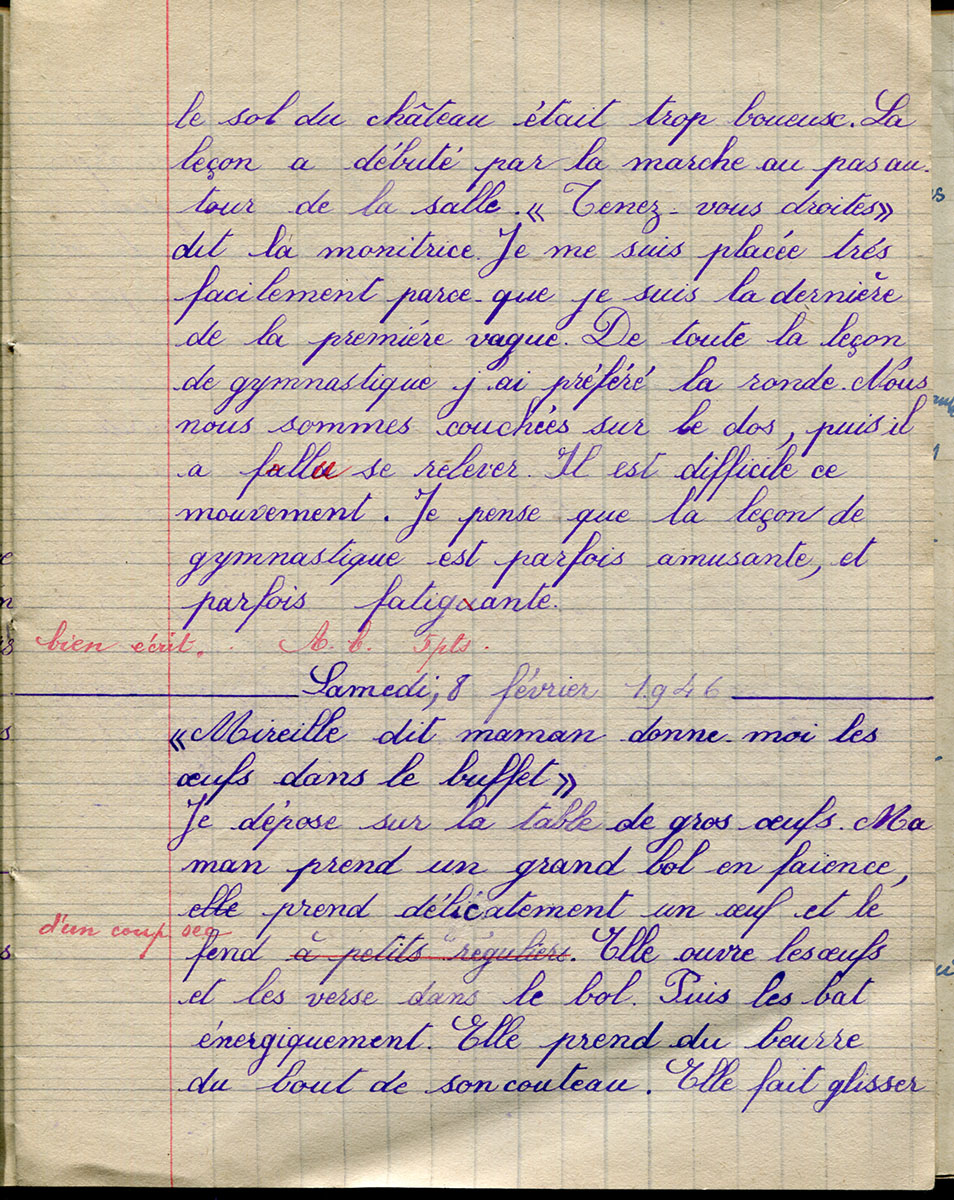 le sol du château était trop boueuse. La
leçon a débuté par la marche au pas au-
tour de la salle. « Tenez-vous droites»
dit la monitrice. Je me suis placée trés
facilement parce-que je suis la dernière
de la premiére vague. De toute la leçon
de gymnastique j'ai préféré la ronde. Nous
nous sommes couchées sur le dos, puis il
a fallu se relever. Il est difficile ce
mouvement. Je pense que la leçon de
gymnastique est parfois amusante, et
parfois fatiguante.
bien écrit. A. b. 5pts.
Samedi, 8 février 1946
«Mireille dit maman donne-moi les
œufs dans le buffet»
Je dépose sur la table de gros œufs. Ma
man prend un grand bol en faïence,
elle prend délicatement un œuf et le
d'un coup sec
fend à petits réguliers. Elle ouvre les œufs
et les verse dans le bol. Puis les bat
énergiquement. Elle prend du beurre
du bout de son couteau. Elle fait glisser